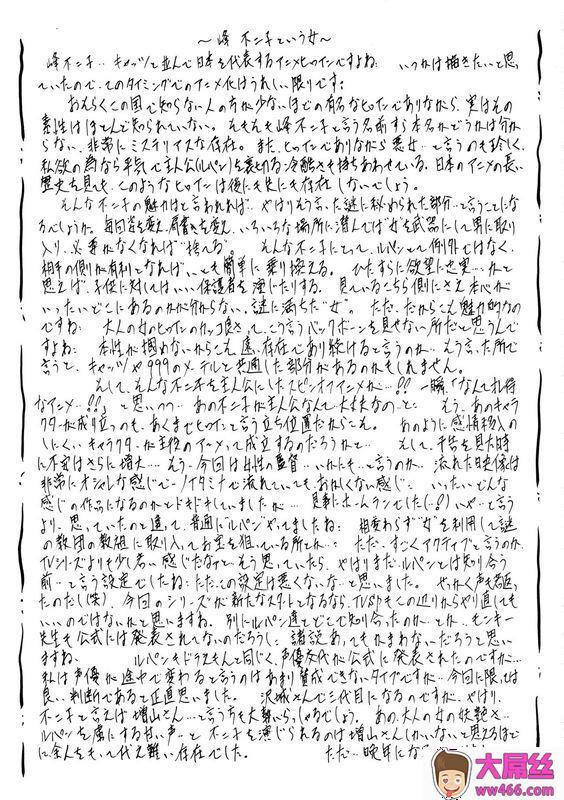 ～峰不二子という女～
峰不二子…キャッツと並んで日本を代表するアニメヒロインですよね いつかは描きたいと思っ
ていたので、このタイミングでのアニメ化はうれしい限りです
おそらくこの国で知らない人の方が少ないほどの有名なヒロインでありながら、実はその
素性はほとんど知られていない。そもそも峰不二子と言う名前すら本名かどうかは分から
ない、非常にミステリアスな存在。また、ヒロインでありながら悪女…と言うのも珍しく、
私欲の為なら平気で主人公(ルパン)を裏切る冷酷さも持ちあわせている。日本のアニメの長い
歴史を見ても、このようなヒロインは後にも先にも存在しないでしょう。
そんな不二子の魅力はと言われれば、やはりそう言った謎に秘められた部分…と言うことにな
るでしょうか。毎回姿を変え、肩書きを変え、いろいろな場所に潜んでは"女"を武器にして男に取り
入り、必要がなくなれば"捨てる"。 そんな不二子にとって、ルパンとて例外ではなく、
相手の側が有利となれば、いとも簡単に乗り換える。 ひたすらに欲望に忠実…かと
思えば、子供に対してはいい保護者を演じたりする。見ているこちら側にさえ本心が
いったいどこにあるのかが分からない、謎に満ちた"女"。 ただ、だからこそ魅力的なの
ですね 大人の女のヒロインのカッコ良さって、こう言うバックボーンを見せない所だと思うんで
すよね 本性が掴めないからこそ、遠い存在であり続けると言うのか… そう言った所で
言うと、キャッツや999のメーテルと共通した部分があるのかもしれません。
そして、そんな不二子を主人公にしたスピンオフアニメが…!! 一瞬「なんて札付
なアニメ…!!」と思いつつ…あの不二子が主人公なんて大丈夫なの…と そう、あのキャラ
クターが成り立つのも、あくまでヒロインと言う立ち位置だからこそ。 あのように感情移入の
しにくいキャラクターが主役のアニメって成立するのだろうかと… そして、予告を見た時
に不安はさらに増大… そう…今回は女性の監督…いかにも…と言うのか、流れた映像は
非常にオシャレな感じで…ノイタミナで流れていてもおかしくない感じ… いったいどんな
感じの作品になるのかとドキドキしていましたが… 見事にホームランでした(…!)いや…と言う
より…思っていたのと違って、普通にルパンやってましたね 相変わらず"女"を利用して謎
の教団の教祖に取り入ってお宝を狙っている所とか… ただ、すごくアクティブと言うのか、
TVシリーズよりも少し若い感じだなァと…そう思っていたら、やはりまだルパンとは知り合う
前…と言う設定でしたね ただ、この設定は悪くないな…と思いました。せっかく声も若返っ
たのだし(笑)、今回のシリーズが新たなスタートとなるなら、TVSPもこの辺りからやり直しても
いいのではないかと思いますね。別にルパン達とどこで知り合ったのか…とか、モンキー
先生も公式には発表されてないのだろうし、諸説あってもかまわないだろうと思い
ますね ルパンもドラえもんと同じく、声優交代が公式に発表されたのですが…
私は声優が途中で変わると言うのはあまり賛成できないタイプですが…今回に限っては
良い判断であると正直思いました。 沢城さんで三代目になるのですが、やはり、
不二子と言えば増山さん…と言う方も大勢いらっしゃるでしょう。あの、大人の女の妖艶さ…
ルパンを虜にする甘い声…と 不二子を演じられるのは増山さんしかいないと思えるほど
に余人をもって代え難い存在でした。 ただ…晩年にな
大屌丝
ww466.com